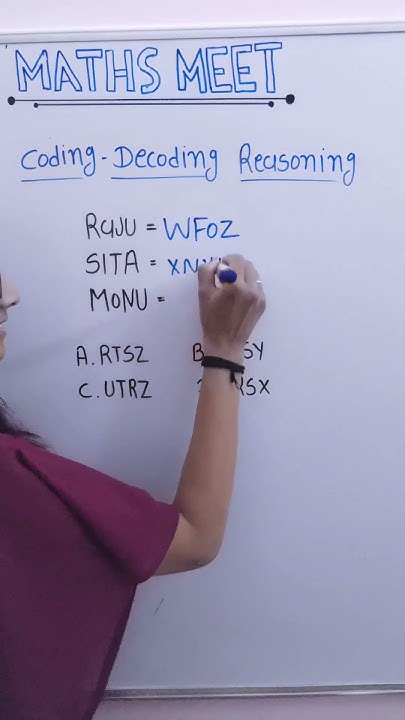 MATHS MEET
Coding-Decoding Reasoning
RaJU = WFOZ
SITA = XN
MoNU =
A. RTSZ B. SY
C. UTRZ RSX